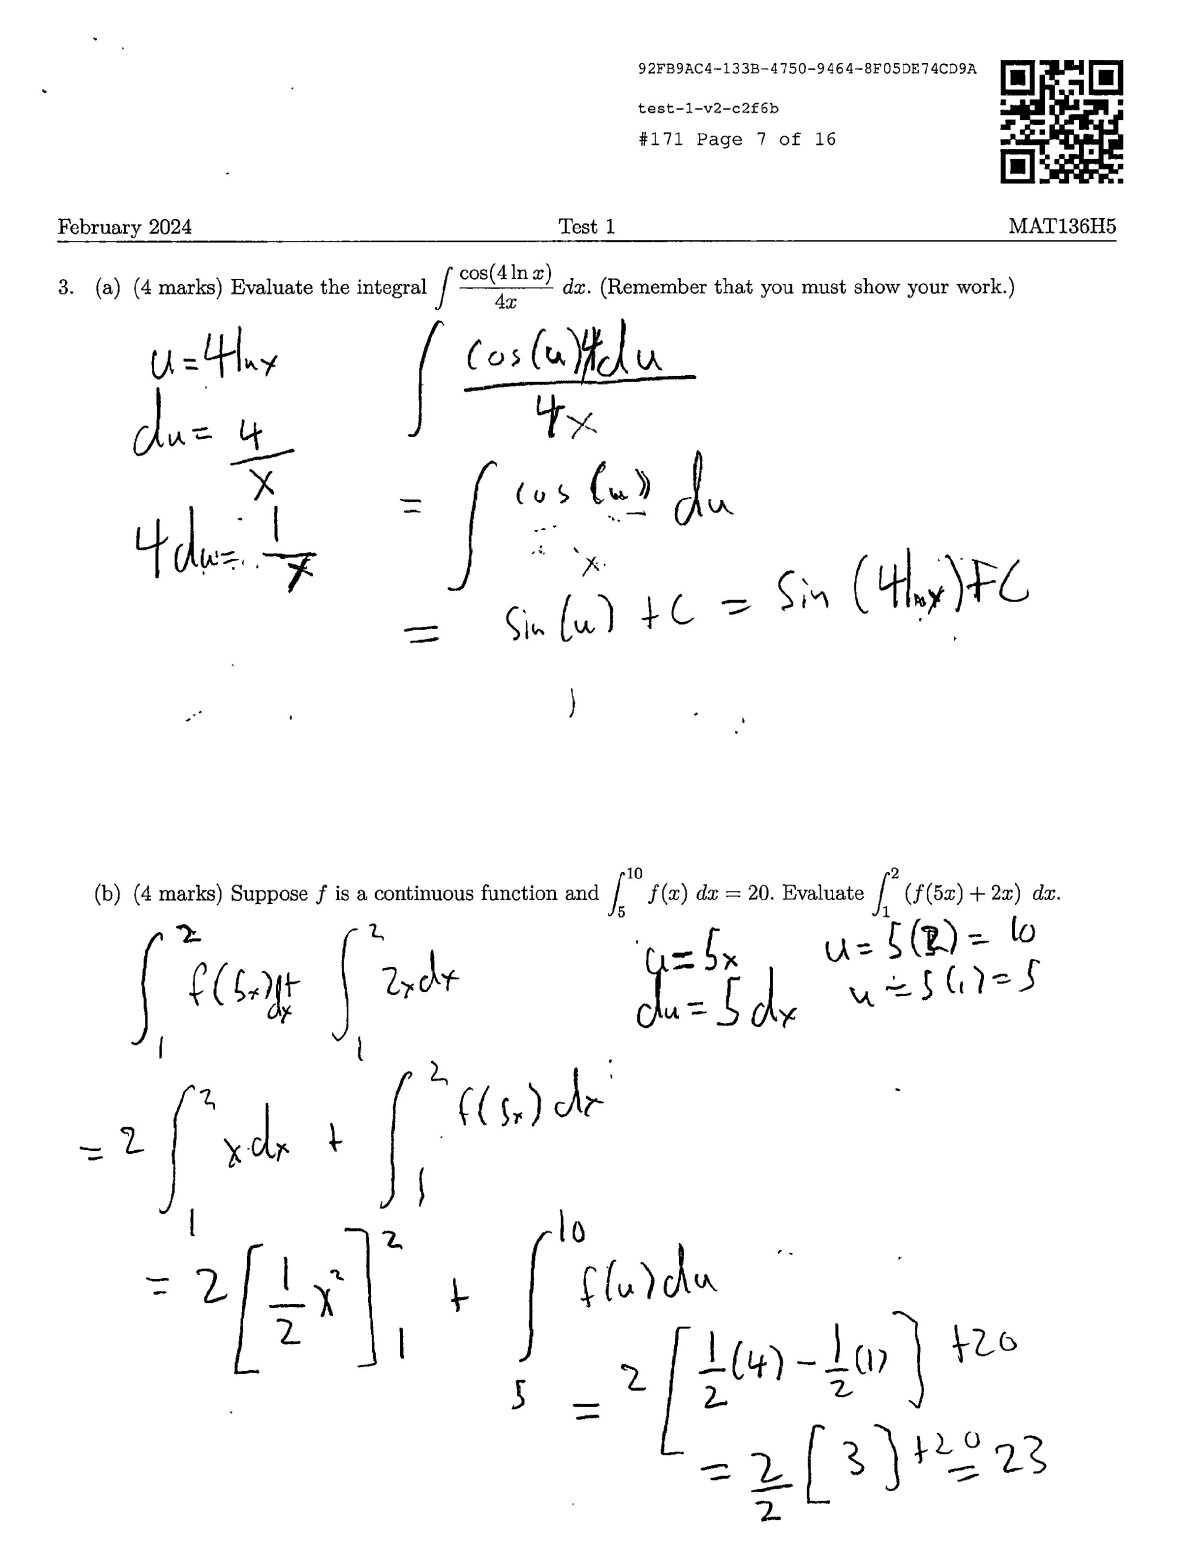 92FB9AC4-133B-4750-9464-8F05DE74CD9A
test-1-v2-c2f6b
#171 Page 7 of 16
February 2024 Test 1 MAT136H5
3. (a) (4 marks) Evaluate the integral ∫ cos(4 ln x)/4x dx. (Remember that you must show your work.)
u = 4lnx
∫ cos(u) 4du / 4x
du = 4/x
= ∫ cos(u) du
4du = 1/x
= sin(u) + C = sin(4lnx) + C
(b) (4 marks) Suppose f is a continuous function and ∫₅¹⁰ f(x) dx = 20. Evaluate ∫₁² (f(5x) + 2x) dx.
∫₁² f(5x)dx + ∫₁² 2xdx
u = 5x u = 5(2) = 10
du = 5dx u = 5(1) = 5
= 2 ∫₁² x dx + ∫₁² f(5x) dx
= 2 [1/2 x²]₁² + ∫₅¹⁰ f(u)du
= 2 [1/2 (4) - 1/2 (1)] + 20
= 2/2 [3] + 20 = 23